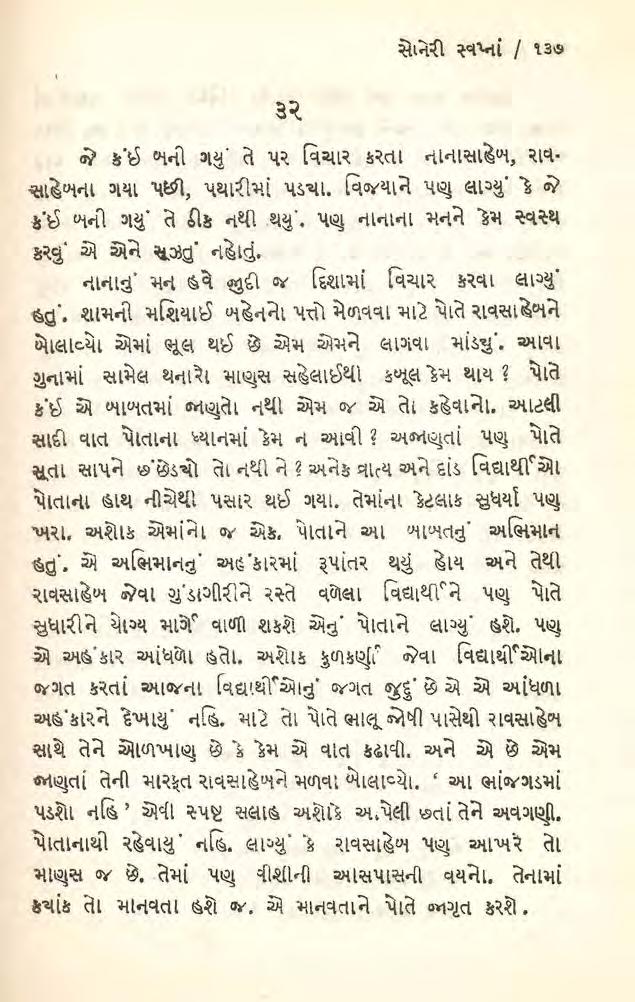 સોનેરી સ્વપ્નાં / ૧૩૭
૩૨
જે કંઈ બની ગયું તે પર વિચાર કરતા નાનાસાહેબ, રાવ-
સાહેબના ગયા પછી, પથારીમાં પડ્યા. વિજયાને પણ લાગ્યું કે જે
કંઈ બની ગયું તે ઠીક નથી થયું. પણ નાનાના મનને કેમ સ્વસ્થ
કરવું એ એને સૂઝતું નહોતું.
નાનાનું મન હવે જુદી જ દિશામાં વિચાર કરવા લાગ્યું
હતું. શામની મશિયાઈ બહેનનો પત્તો મેળવવા માટે પોતે રાવસાહેબને
બોલાવ્યો એમાં ભૂલ થઈ છે એમ એમને લાગવા માંડ્યું. આવા
ગુનામાં સામેલ થનારો માણસ સહેલાઈથી કબૂલ કેમ થાય ? પોતે
કંઈ એ બાબતમાં જાણતો નથી એમ જ એ તો કહેવાનો. આટલી
સાદી વાત પોતાના ધ્યાનમાં કેમ ન આવી ? અજાણતાં પણ પોતે
સૂતા સાપને છંછેડ્યો તો નથી ને ? અનેક વ્રાત્ય અને દાંડ વિદ્યાર્થીઓ
પોતાના હાથ નીચેથી પસાર થઈ ગયા. તેમાંના કેટલાક સુધર્યા પણ
ખરા. અશોક એમાંનો જ એક. પોતાને આ બાબતનું અભિમાન
હતું. એ અભિમાનનું અહંકારમાં રૂપાંતર થયું હોય અને તેથી
રાવસાહેબ જેવા ગુંડાગીરીને રસ્તે વળેલા વિદ્યાર્થીને પણ પોતે
સુધારીને યોગ્ય માર્ગે વાળી શકશે એનું પોતાને લાગ્યું હશે. પણ
એ અહંકાર આંધળો હતો. અશોક કુળકર્ણી જેવા વિદ્યાર્થીઓના
જગત કરતાં આજના વિદ્યાર્થીઓનું જગત જુદું છે એ એ આંધળા
અહંકારને દેખાયું નહિ. માટે તો પોતે ભાલૂ જોષી પાસેથી રાવસાહેબ
સાથે તેને ઓળખાણ છે કે કેમ એ વાત કઢાવી. અને એ છે એમ
જાણતાં તેની મારફત રાવસાહેબને મળવા બોલાવ્યો. ‘ આ ભાંજગડમાં
પડશો નહિ ’ એવી સ્પષ્ટ સલાહ અશોકે આપેલી છતાં તેને અવગણી.
પોતાનાથી રહેવાયું નહિ. લાગ્યું કે રાવસાહેબ પણ આખરે તો
માણસ જ છે. તેમાં પણ વીશીની આસપાસની વયનો. તેનામાં
ક્યાંક તો માનવતા હશે જ. એ માનવતાને પોતે જાગૃત કરશે.